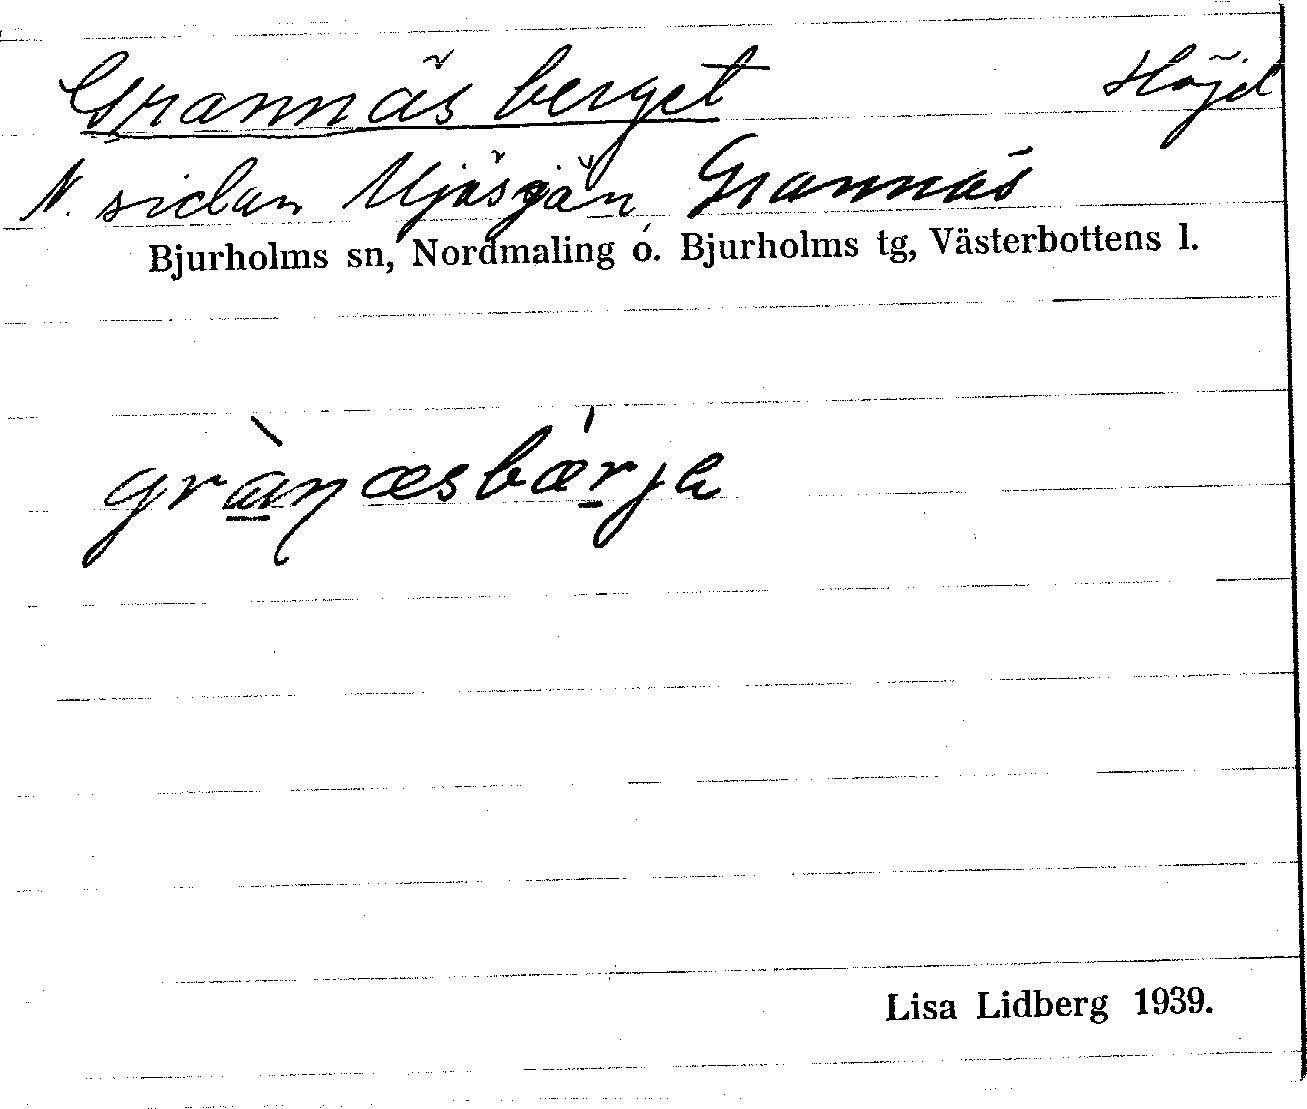 Grannäsberget Höjd
N. sidan Mjösjön Grannäs
Bjurholms sn, Nordmaling o. Bjurholms tg, Västerbottens l.
grànæsbǽrja
Lisa Lidberg 1939.